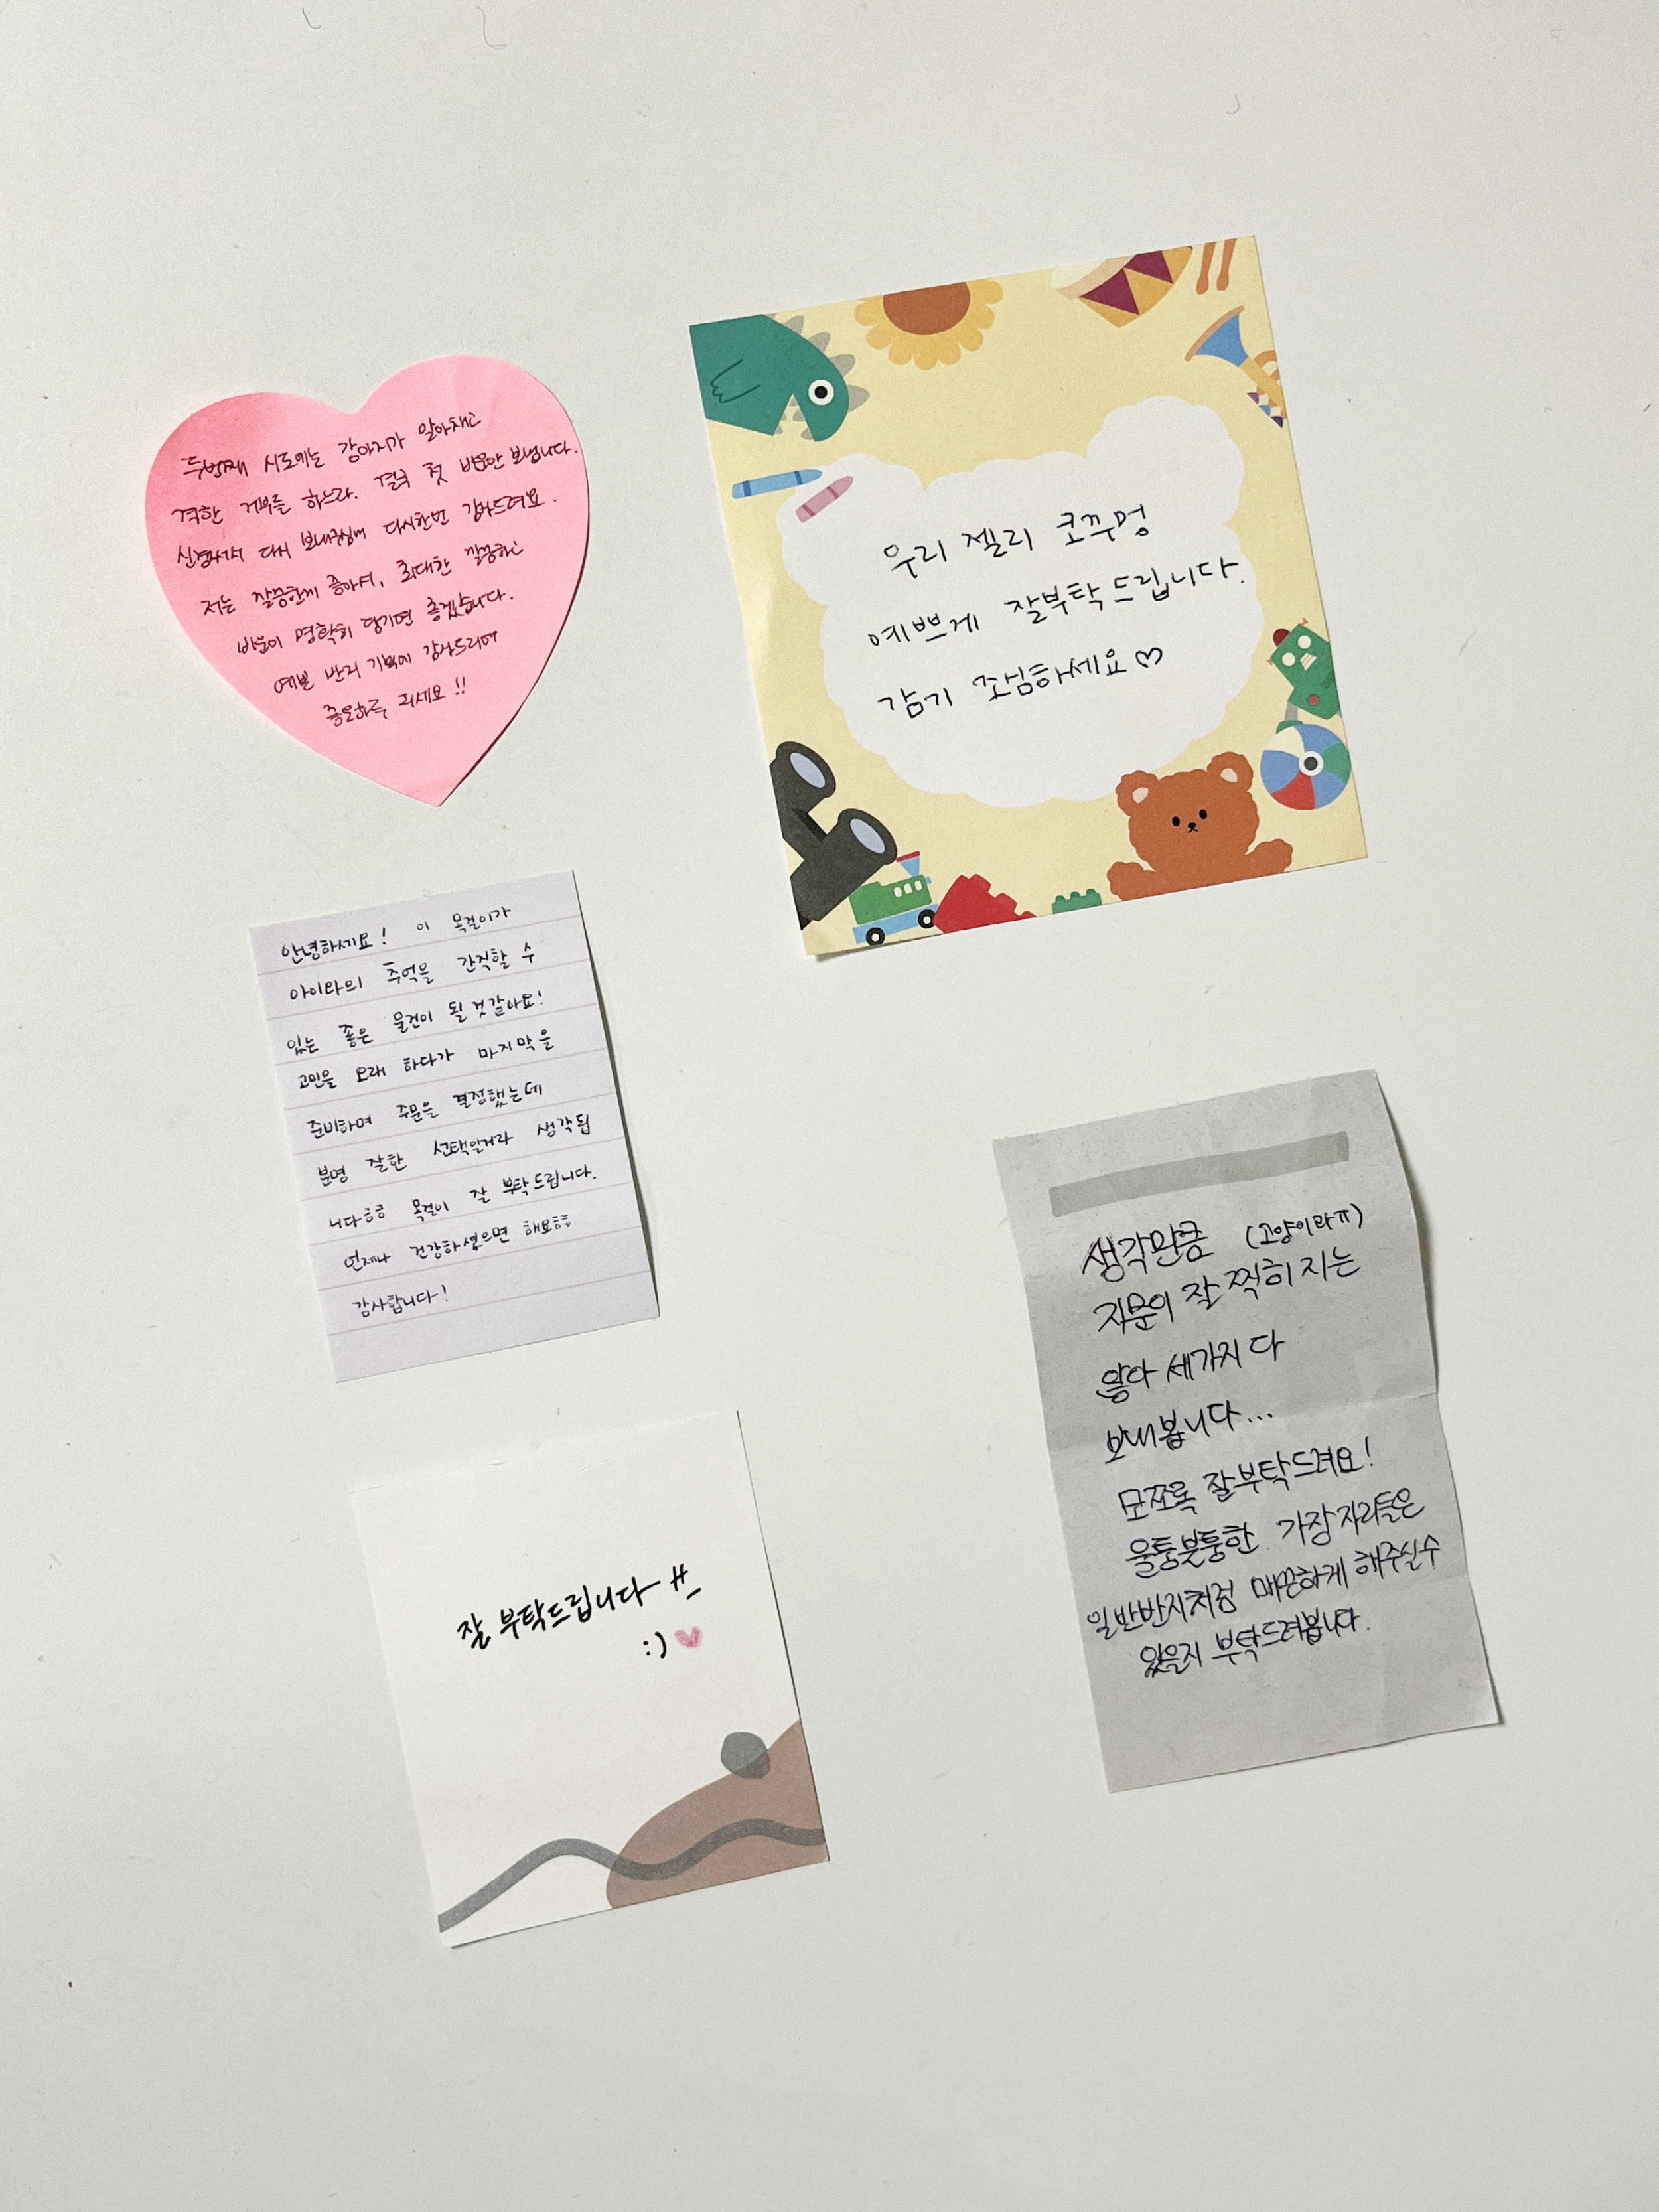 두번째 시도에는 강아지가 알아채고
격한 거부를 하느라. 결국 첫 비문만 보냅니다.
신경써서 다시 보내주심에 다시한번 감사드려요.
저는 깔끔한게 좋아서, 최대한 깔끔하고
비문이 명확히 담기면 좋겠습니다.
예쁠 반지 기쁘게 감사드리며
좋은하루 되세요!!
우리 젤리 코꾸멍
예쁘게 잘부탁드립니다.
감기 조심하세요♡
안녕하세요! 이 목걸이가
아이와의 추억을 간직할 수
있는 좋은 물건이 될것같아요!
고민을 오래 하다가 마지막을
준비하며 주문을 결정했는데
분명 잘한 선택일거라 생각됩
니다ㅎㅎ 목걸이 잘 부탁드립니다.
언제나 건강하셨으면 해요ㅎㅎ
감사합니다!
생각만큼 (고양이라ㅠ)
지문이 잘 찍히지는
않아 세가지 다
보내봅니다...
모쪼록 잘부탁드려요!
울퉁불퉁한 가장자리들은
일반반지처럼 매끈하게 해주실수
있을지 부탁드려봅니다.
잘 부탁드립니다^^
:) ♥